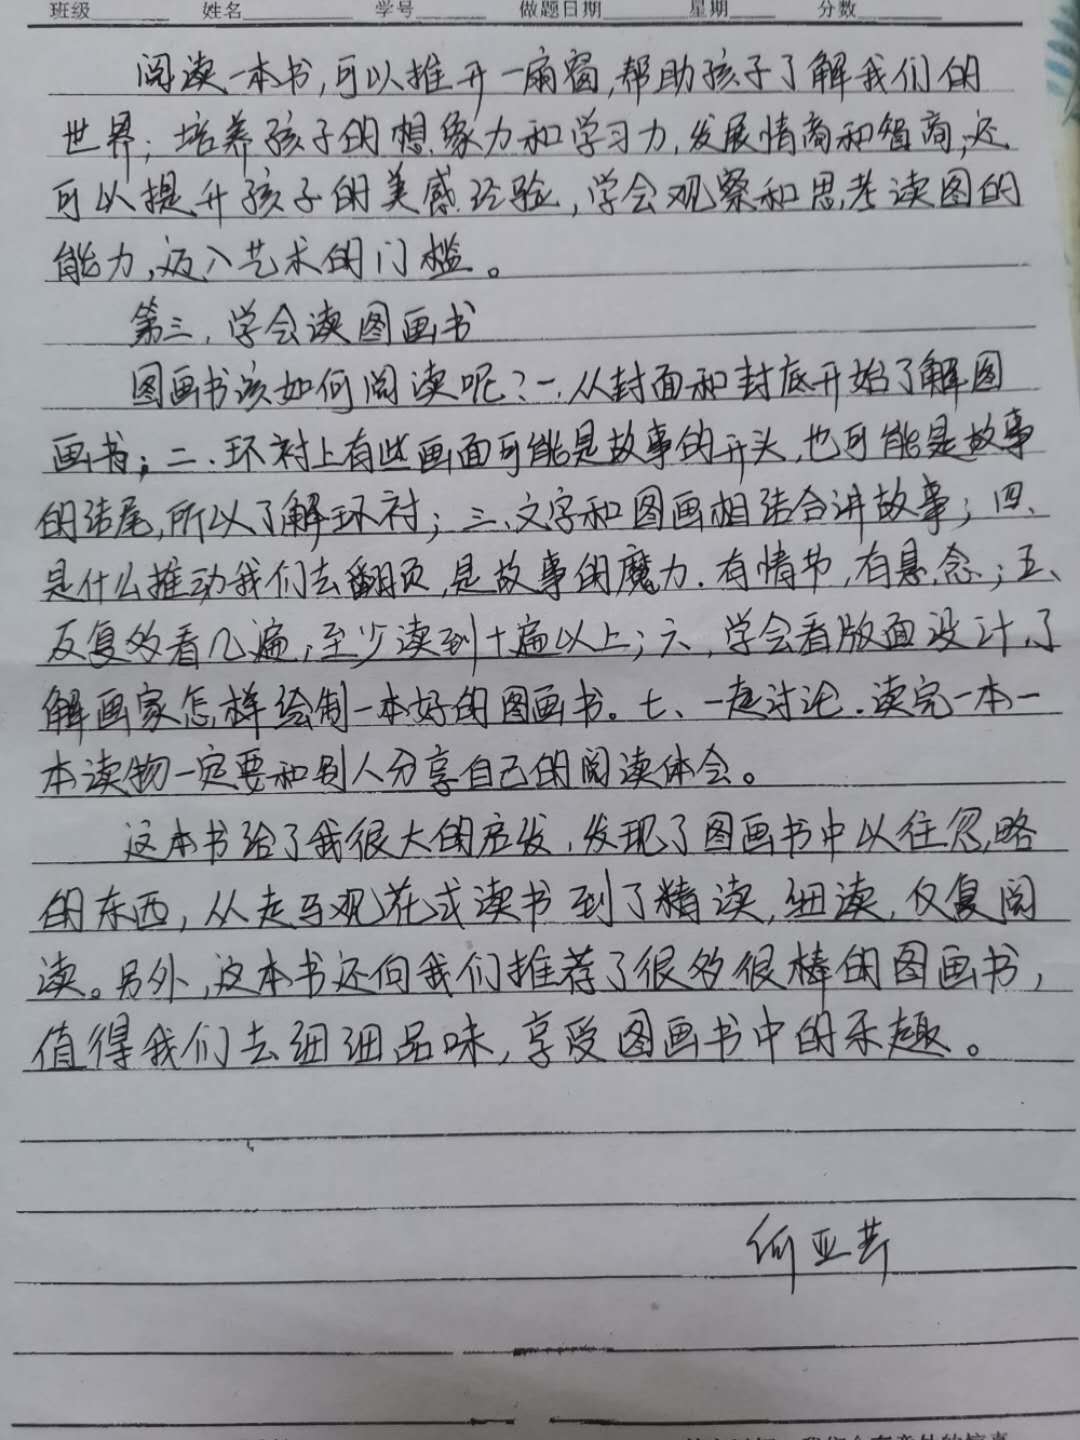 班级 姓名 学号 做题日期 星期 分数
阅读一本书,可以推开一扇窗,帮助孩子了解我们的
世界;培养孩子的想象力和学习力,发展情商和智商;还
可以提升孩子的美感经验,学会观察和思考读图的
能力,迈入艺术的门槛。
第三,学会读图画书
图画书该如何阅读呢?一.从封面和封底开始了解图
画书;二.环衬上有些画面可能是故事的开头,也可能是故事
的结尾,所以了解环衬;三、文字和图画相结合讲故事;四、
是什么推动我们去翻页,是故事的魔力.有情节,有悬念;五、
反复多看几遍,至少读到十遍以上;六,学会看版面设计,了
解画家怎样绘制一本好的图画书。七、一起讨论.读完一本一
本读物一定要和别人分享自己的阅读体会。
这本书给了我很大的启发,发现了图画书中以往忽略
的东西,从走马观花式读书到了精读,细读,反复阅
读。另外,这本书还向我们推荐了很多很棒的图画书,
值得我们去细细品味,享受图画书中的乐趣。
何亚